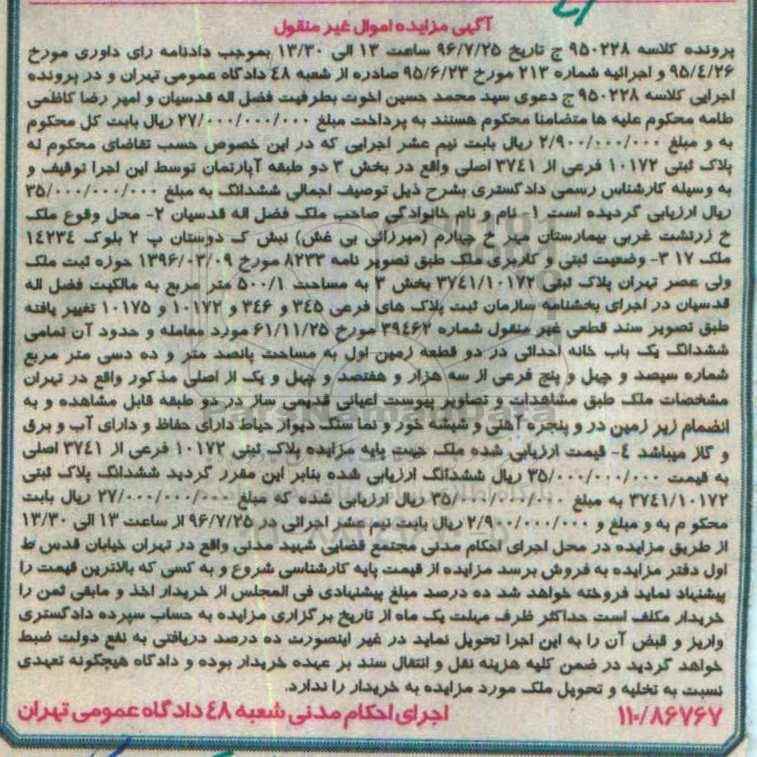 آگهی مزایده اموال غیر منقول
پرونده کلاسه ۹۵۰۲۲۸ ج تاریخ ۹۶/۷/۲۵ ساعت ۱۳ الی ۱۳/۳۰ بموجب دادنامه رای داوری مورخ
۹۵/۴/۲۶ و اجرائیه شماره ۲۱۳ مورخ ۹۵/۶/۲۳ صادره از شعبه ۴۸ دادگاه عمومی تهران و در پرونده
اجرایی کلاسه ۹۵۰۲۲۸ ج دعوی سید محمد حسین اخوت بطرفیت فضل اله قدسیان و امیر رضا کاظمی
طامه محکوم علیه ها متضامنا محکوم هستند به پرداخت مبلغ ۲۷/۰۰۰/۰۰۰/۰۰۰ ریال بابت کل محکوم
به و مبلغ ۲/۹۰۰/۰۰۰/۰۰۰ ریال بابت نیم عشر اجرایی که در این خصوص حسب تقاضای محکوم له
پلاک ثبتی ۱۰۱۷۲ فرعی از ۳۷۴۱ اصلی واقع در بخش ۳ دو طبقه آپارتمان توسط این اجرا توقیف و
به وسیله کارشناس رسمی دادگستری بشرح ذیل توصیف اجمالی ششدانگ به مبلغ ۳۵/۰۰۰/۰۰۰/۰۰۰
ریال ارزیابی گردیده است ۱- نام و نام خانوادگی صاحب ملک فضل اله قدسیان ۲- محل وقوع ملک
خ زرتشت غربی بیمارستان مهر خ چهارم (میرزائی بی غش) نبش ک دوستان پ ۲ بلوک ۱۴۲۳۴
ملک ۱۷ ۳- وضعیت ثبتی و کاربری ملک طبق تصویر نامه ۸۲۳۳ مورخ ۱۳۹۶/۰۳/۰۹ حوزه ثبت ملک
ولی عصر تهران پلاک ثبتی ۳۷۴۱/۱۰۱۷۲ بخش ۳ به مساحت ۵۰۰/۱ متر مربع به مالکیت فضل اله
قدسیان در اجرای بخشنامه سازمان ثبت پلاک های فرعی ۳۴۵ و ۳۴۶ و ۱۰۱۷۲ و ۱۰۱۷۵ تغییر یافته
طبق تصویر سند قطعی غیر منقول شماره ۳۹۴۶۲ مورخ ۶۱/۱۱/۲۵ مورد معامله و حدود آن تمامی
ششدانگ یک باب خانه احداثی در دو قطعه زمین اول به مساحت پانصد متر و ده دسی متر مربع
شماره سیصد و چهل و پنج فرعی از سه هزار و هفتصد و چهل و یک از اصلی مذکور واقع در تهران
مشخصات ملک طبق مشاهدات و تصاویر پیوست اعیانی قدیمی ساز در دو طبقه قابل مشاهده و به
انضمام زیر زمین در و پنجره آهنی و شیشه خور و نما سنگ دیوار حیاط دارای حفاظ و دارای آب و برق
و گاز میباشد ۴- قیمت ارزیابی شده ملک جهت پایه مزایده پلاک ثبتی ۱۰۱۷۲ فرعی از ۳۷۴۱ اصلی
به قیمت ۳۵/۰۰۰/۰۰۰/۰۰۰ ریال ششدانگ ارزیابی شده بنابر این مقرر گردید ششدانگ پلاک ثبتی
۳۷۴۱/۱۰۱۷۲ به مبلغ ۳۵/۰۰۰/۰۰۰/۰۰۰ ریال ارزیابی شده که مبلغ ۲۷/۰۰۰/۰۰۰/۰۰۰ ریال بابت
محکو م به و مبلغ و ۲/۹۰۰/۰۰۰/۰۰۰ ریال بابت نیم عشر اجرائی در ۹۶/۷/۲۵ از ساعت ۱۳ الی ۱۳/۳۰
از طریق مزایده در محل اجرای احکام مدنی مجتمع قضایی شهید مدنی واقع در تهران خیابان قدس ط
اول دفتر مزایده به فروش برسد مزایده از قیمت پایه کارشناسی شروع و به کسی که بالاترین قیمت را
پیشنهاد نماید فروخته خواهد شد ده درصد مبلغ پیشنهادی فی المجلس از خریدار اخذ و مابقی ثمن را
خریدار مکلف است حداکثر ظرف مهلت یک ماه از تاریخ برگزاری مزایده به حساب سپرده دادگستری
واریز و قبض آن را به این اجرا تحویل نماید در غیر اینصورت ده درصد دریافتی به نفع دولت ضبط
خواهد گردید در ضمن کلیه هزینه نقل و انتقال سند بر عهده خریدار بوده و دادگاه هیچگونه تعهدی
نسبت به تخلیه و تحویل ملک مورد مزایده به خریدار را ندارد.
۱۱۰/۸۶۷۶۷ اجرای احکام مدنی شعبه ۴۸ دادگاه عمومی تهران
ParsNamadData